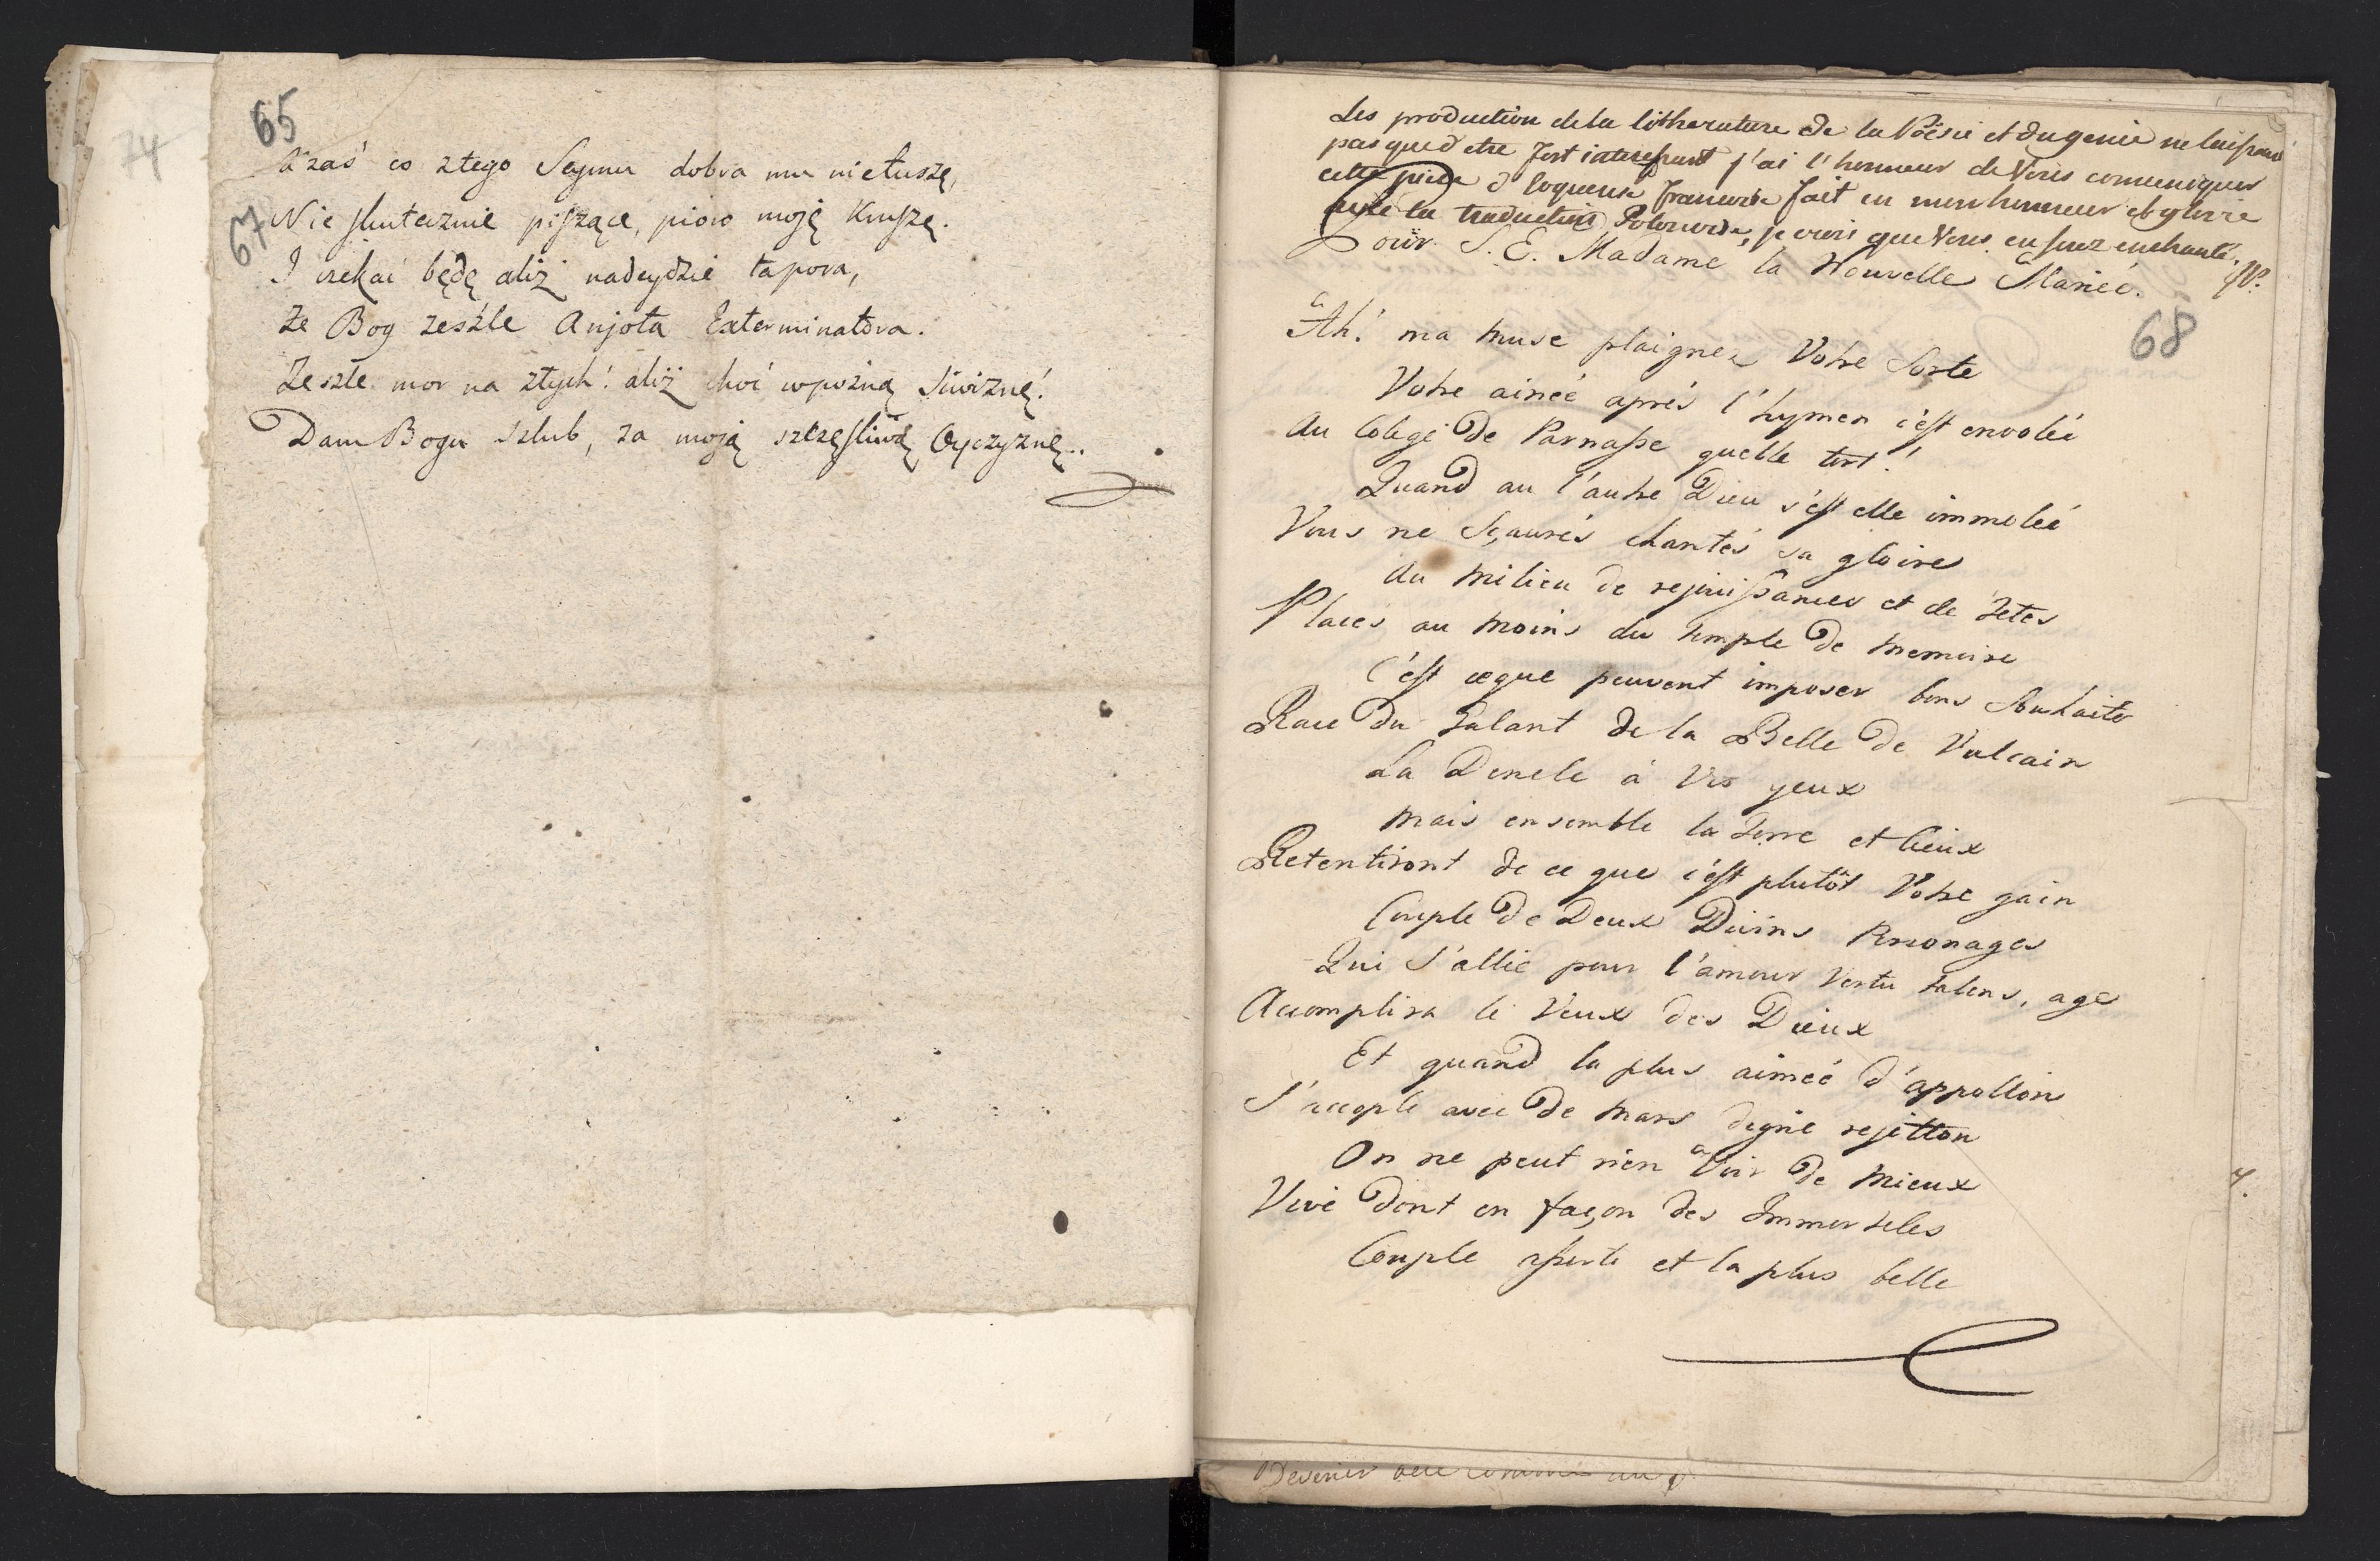 74
65
A zaś co ztego Seymu dobra mu nietuszę,
67
Nie skutecznie piszące, pioro moję kruszę.
I czekać będę aliż nadeydzie ta pora,
Ze Bog ześźle Anjoła Exterminatora.
Ześzle mor na złych! aliż choć wpoźną siwiznę!
Dam Bogu szlub, za moją szczęśliwą Oyczyznę..
Les production de la litherature de la Poësie et du genie ne laissant
pas que d etre fort interessant j'ai l'honneur de Vous comuniquer
cette piece d'loquense francoise fait en mon honneur et glorie
avec la traduction Polonoise, je crois que Vous en serez enchanté.
Pour S. E. Madame la Nouvelle Mariée.
68
Ah! ma muse plaignez Votre Sorte
Votre ainée aprés l'hymen c'est envolée
Au Colege de Parnasse quelle tort!
Quand au l'autre Dieu s'est elle immolée
Vous ne Sçaurés chantés sa gloire
Au milieu de rejouissances et de fetes
Placés au moins du temple de memoire
C'est ceque peuvent imposer bons Souhaits
Race du Galant de la Belle de Vulcain
La Derele á Vos yeux
Mais ensemble la Terre et Cieux
Retentiront de ce que c'est plutôt Votre gain
Couple de Deux Divins Personages
Qui S'allie pour l'amour Vertu talens, age
Accomplira le Veux des Dieux
Et quand la plus aimée d'appollon
S'accople avec de Mars digne rejetton
On ne peut rien a Voir de Mieux
Vive dont en façon des Immorteles
Couple et la plus belle
Devenir